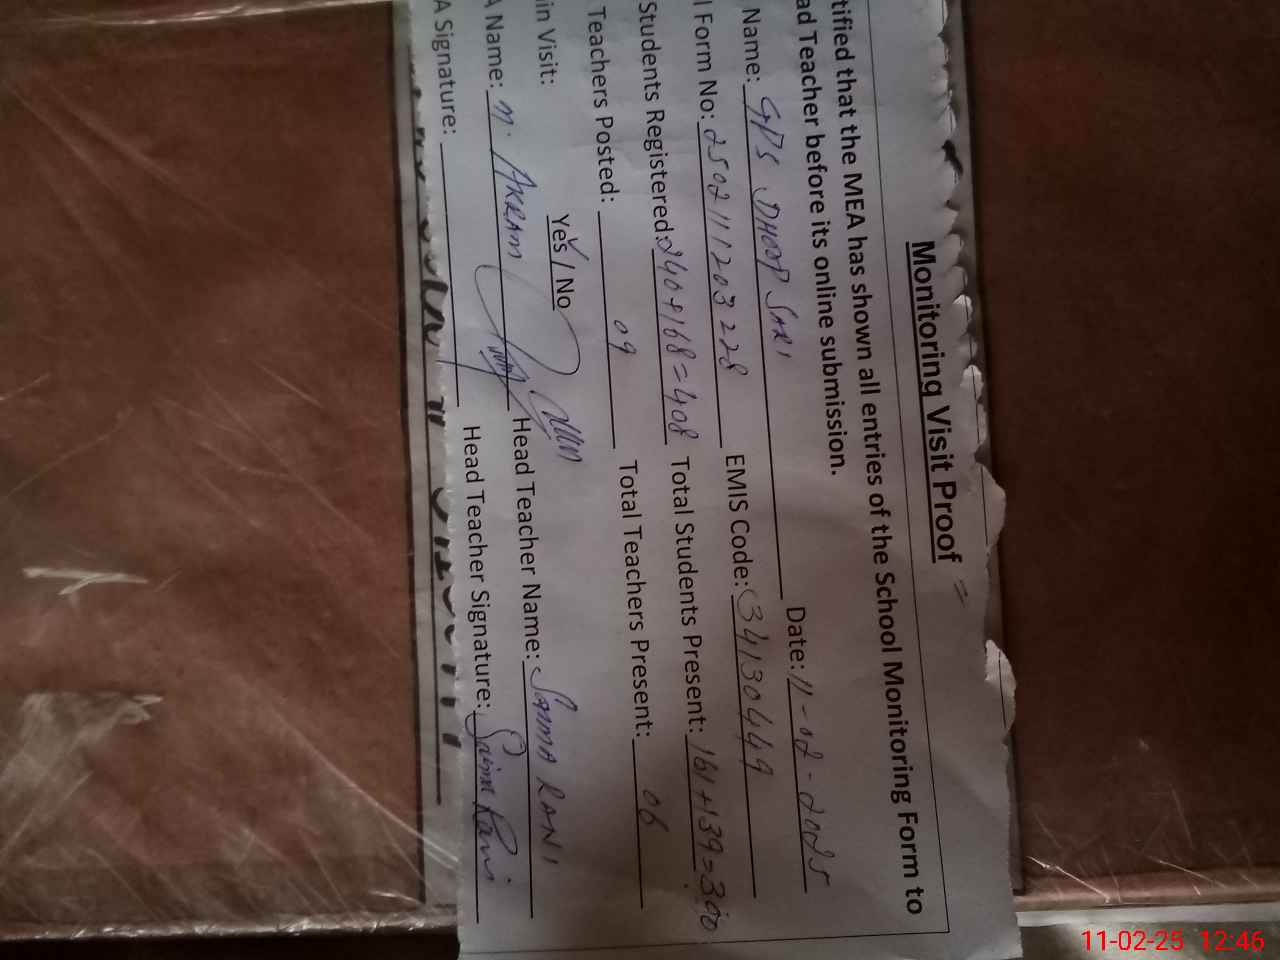 Monitoring Visit Proof
tified that the MEA has shown all entries of the School Monitoring Form to
ad Teacher before its online submission.
Name: GPS DHOOP SARI Date: 11-02-2025
l Form No: 2502111203228 EMIS Code: 34130449
Students Registered: 240+168=408 Total Students Present: 161+139=300
Teachers Posted: 09 Total Teachers Present: 06
in Visit: Yes / No
A Name: M. AKRAM Head Teacher Name: SAIMA RANI
A Signature: Head Teacher Signature: Saima Rani
11-02-25 12:46